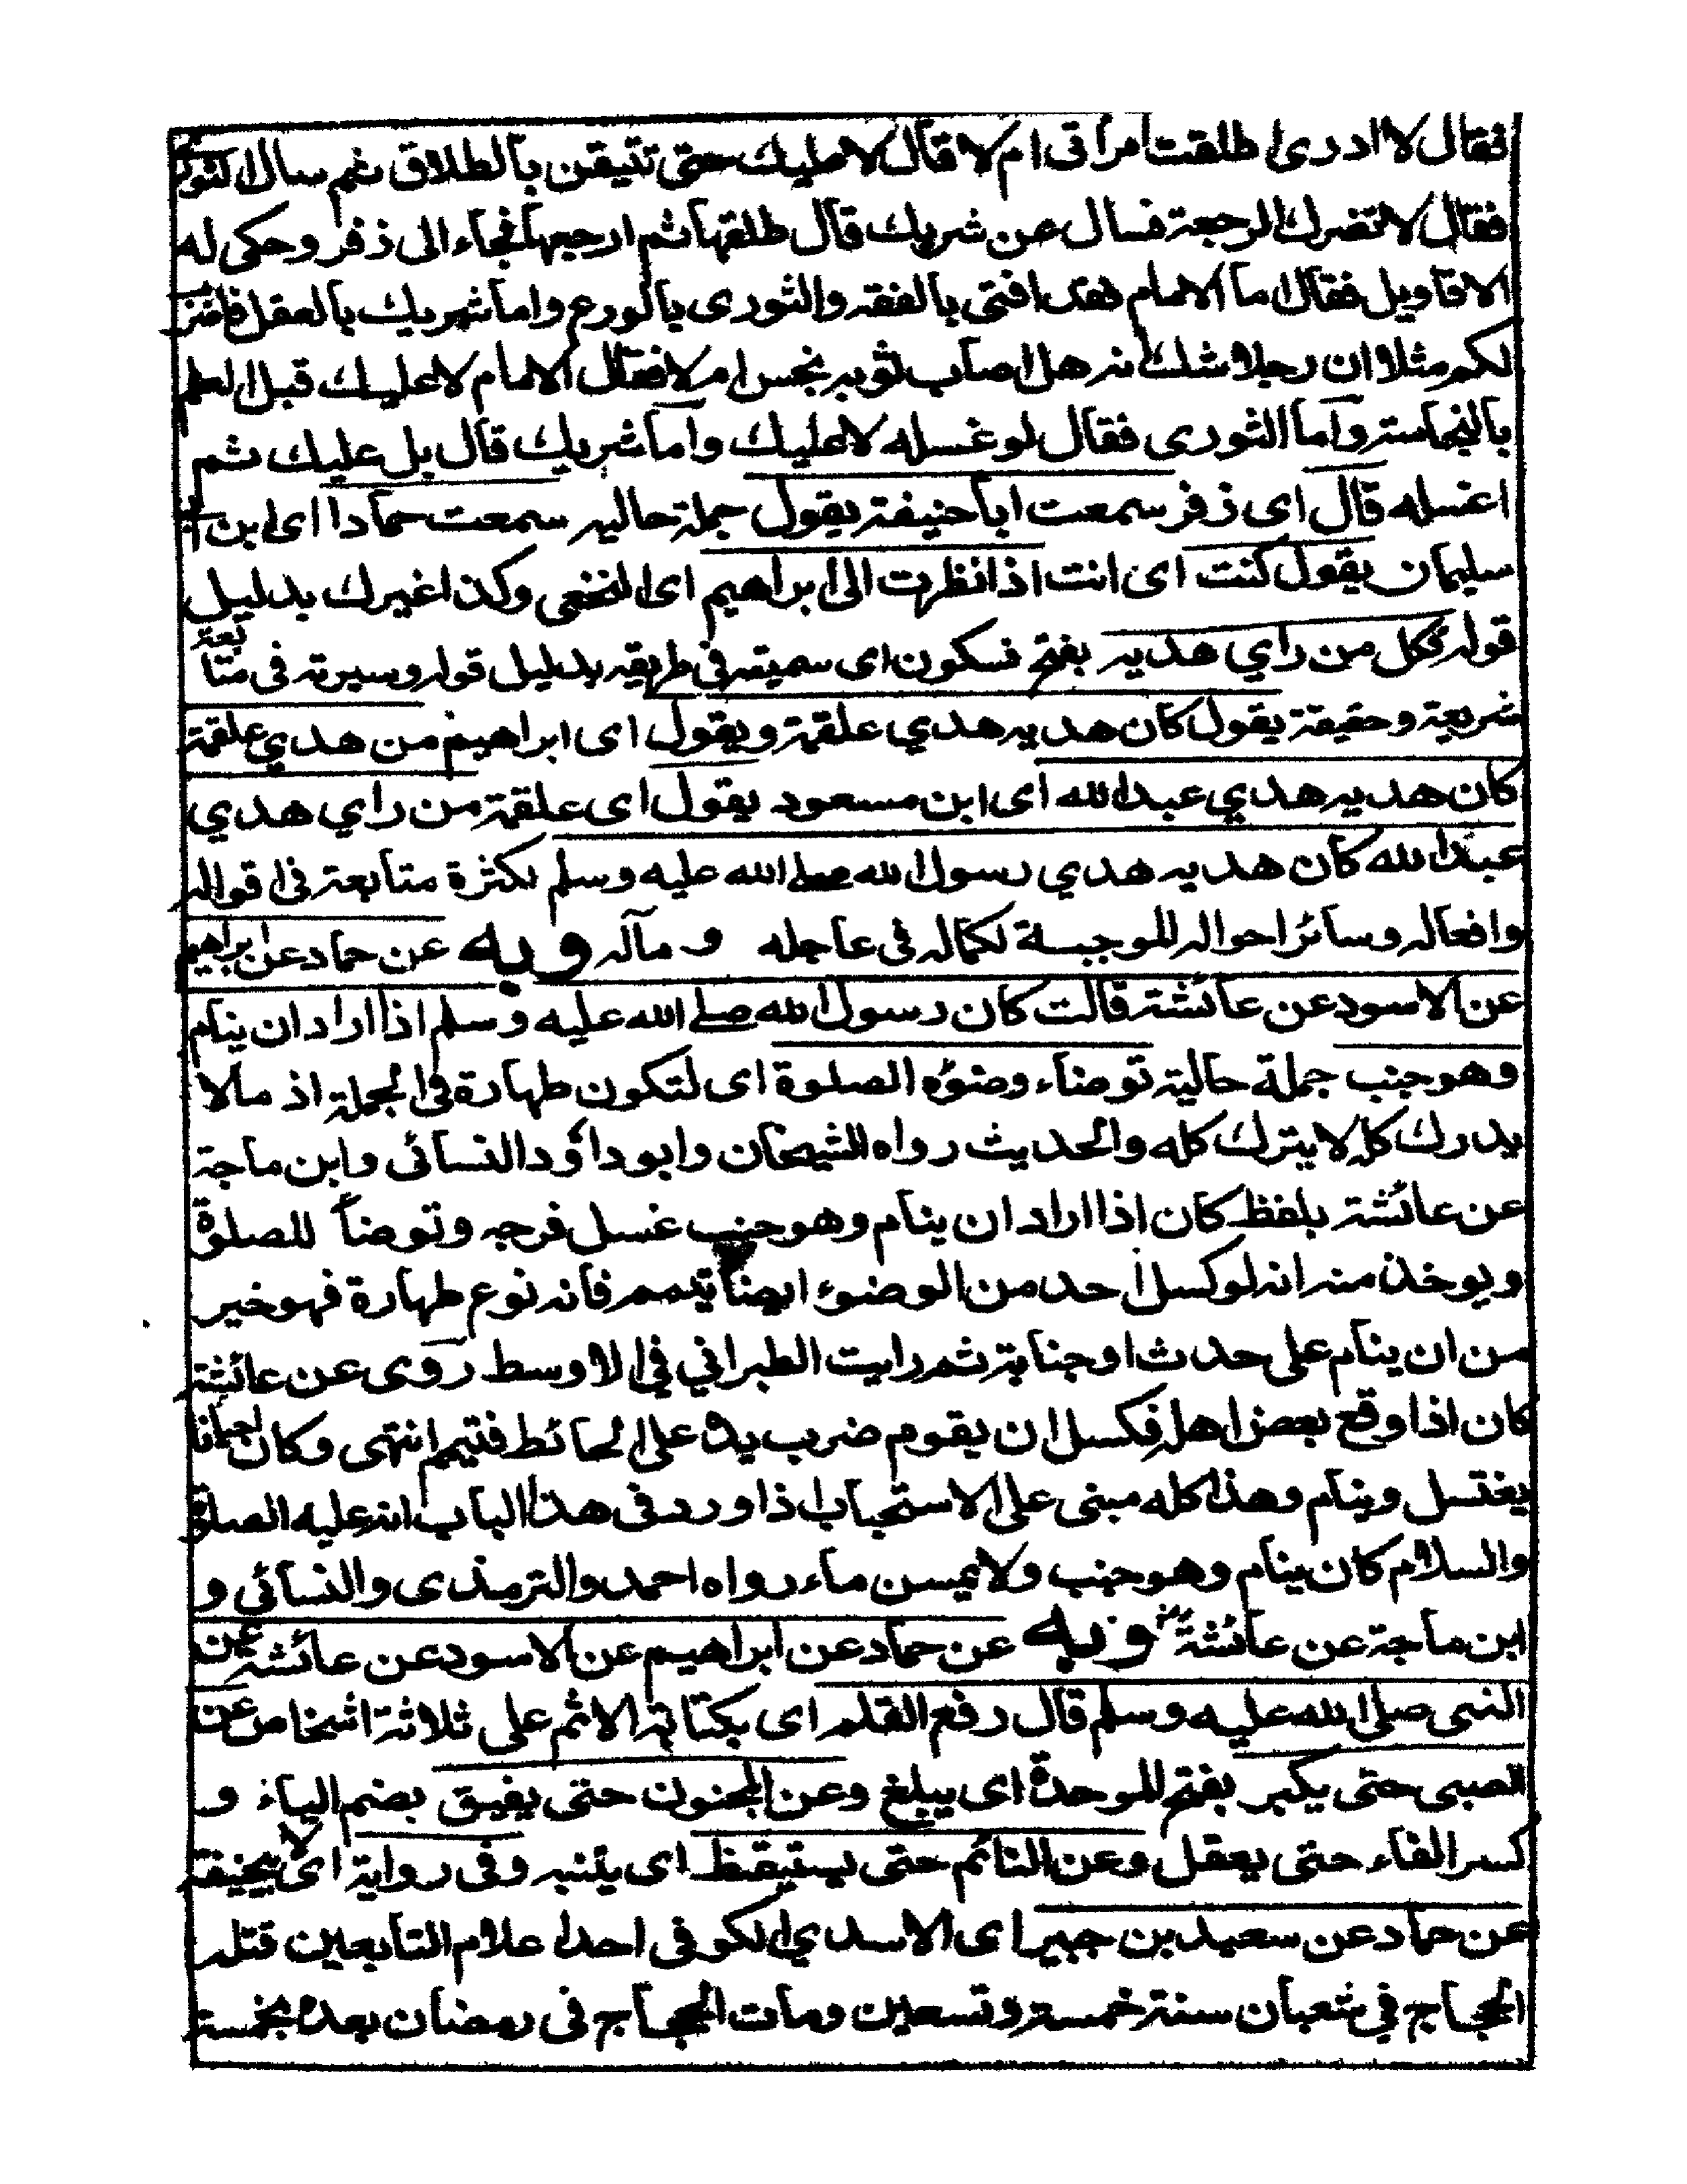 فقال لا ادرى طلقت امراتى ام لا قال لا عليك حتى تتيقن بالطلاق ثم سال الثورى
فقال لا تضرك الرجعة فسال عن شريك قال طلقها ثم ارجعها فجاء الى زفر وحكى له
الاقاويل فقال اما الامام فقد افتى بالفقه والثورى بالورع واما شريك بالعقل فاضرب
لكم مثلا ان رجلا شك انه هل اصاب ثوبه نجس ام لا فقال الامام لا عليك قبل العلم
بالنجاسة واما الثورى فقال لو غسله لا عليك واما شريك قال بل عليك ثم
اغسله قال اى زفر سمعت ابا حنيفة يقول جملة حاليه سمعت حمادا اى ابن ابى
سليمان يقول كنت اى انت اذا نظرت الى ابراهيم اى النخعى وكذا غيرك بدليل
قوله فكل من راي هديه بفتح فسكون اى سميته فى طريقه بدليل قوله وسيرته فى متابعة
شريعة وحقيقة يقول كان هديه هدي علقمة ويقول اى ابراهيم من هدي علقمة
كان هديه هدي عبد الله اى ابن مسعود يقول اى علقمة من راي هدي
عبد الله كان هديه هدي رسول الله صلے الله عليه وسلم لكثرة متابعته فى اقواله
وافعاله وسائر احواله الموجبة لكماله فى عاجله و مآله وبه عن حماد عن ابراهيم
عن الاسود عن عائشة قالت كان رسول الله صلے الله عليه وسلم اذا اراد ان ينام
وهو جنب جملة حالية توضاء وضوءه الصلوة اى لتكون طهارة فى الجملة اذ مالا
يدرك كله لا يترك كله والحديث رواه الشيخان وابوداؤد النسائى وابن ماجة
عن عائشة بلفظ كان اذا اراد ان ينام وهو جنب غسل فرجه وتوضأ للصلوة
ويوخذ منه انه لو كسل احد من الوضوء ايضا تيمم فانه نوع طهارة فهو خير
من ان ينام على حدث او جنابة ثم رايت الطبراني في الاوسط روى عن عائشة
كان اذا وقع بعض اهله فكسل ان يقوم ضرب يده على الحائط فتيمم انتهى وكان احيانا
يغتسل وينام وهذا كله مبنى على الاستحباب اذا ورد فى هذا الباب انه عليه الصلوة
والسلام كان ينام وهو جنب ولا يمسن ماء رواه احمد والترمذى والنسائي و
ابن ماجة عن عائشة وبه عن حماد عن ابراهيم عن الاسود عن عائشة عن
النبى صلى الله عليه وسلم قال رفع القلم اى بكتابة الاثم على ثلاثة اشخاص عن
الصبى حتى يكبر بفتح الموحدة اى يبلغ وعن المجنون حتى يفيق بضم الياء و
كسر الفاء حتى يعقل وعن النائم حتى يستيقظ اى يتنبه وفى رواية اى لابيحنيفة
عن حماد عن سعيد بن جبير اى الاسدي الكوفى احد اعلام التابعين قتله
الحجاج في شعبان سنة خمسة وتسعين ومات الحجاج فى رمضان بعده بخمسة